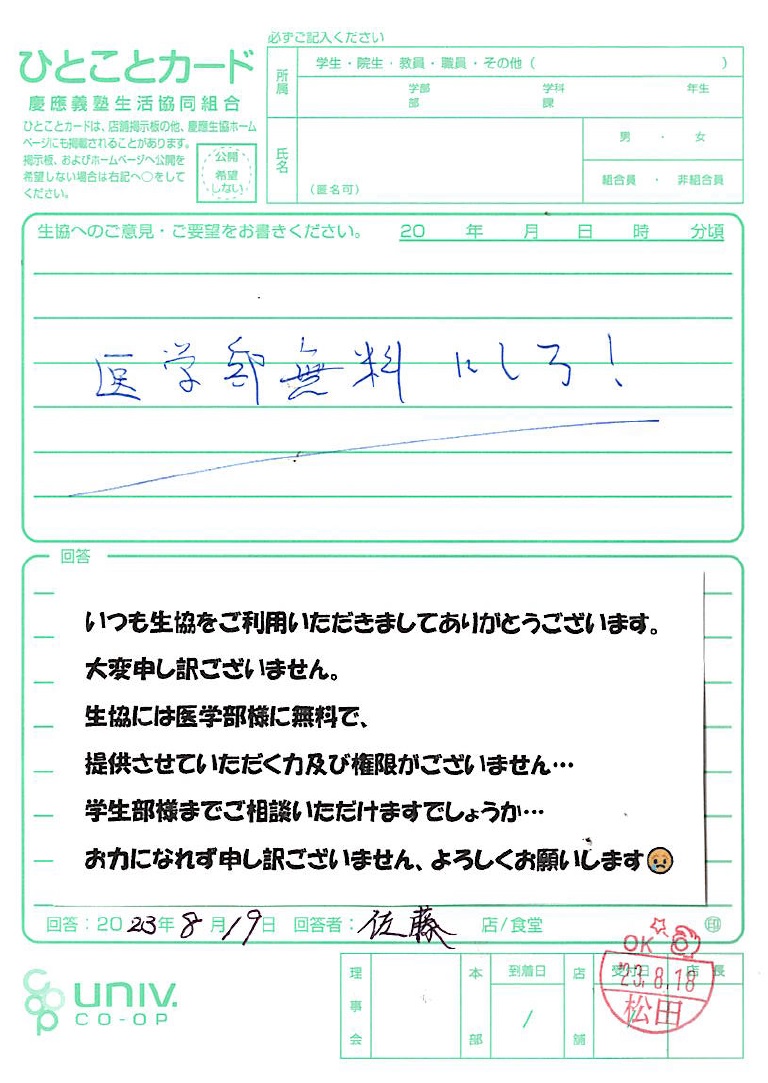 必ずご記入ください
ひとことカード
慶應義塾生活協同組合
ひとことカードは、店舗掲示板の他、慶應生協ホーム
ページにも掲載されることがあります。
掲示板、およびホームページへ公開を
希望しない場合は右記へ○をして
ください。
公開
希望
しない
所属
学生・院生・教員・職員・その他( )
学部 学科 年生
部 課
氏名
(匿名可)
男 ・ 女
組合員 ・ 非組合員
生協へのご意見・ご要望をお書きください。 20 年 月 日 時 分頃
医学部無料にしろ!
回答
いつも生協をご利用いただきましてありがとうございます。
大変申し訳ございません。
生協には医学部様に無料で、
提供させていただく力及び権限がございません…
学生部様までご相談いただけますでしょうか…
お力になれず申し訳ございません、よろしくお願いします😢
回答:2023年8月19日 回答者:佐藤 店/食堂 印
理事会 本部 到着日 / 店舗 受付日 / 店長
OK
'23.8.18
松田
coop univ.
CO-OP